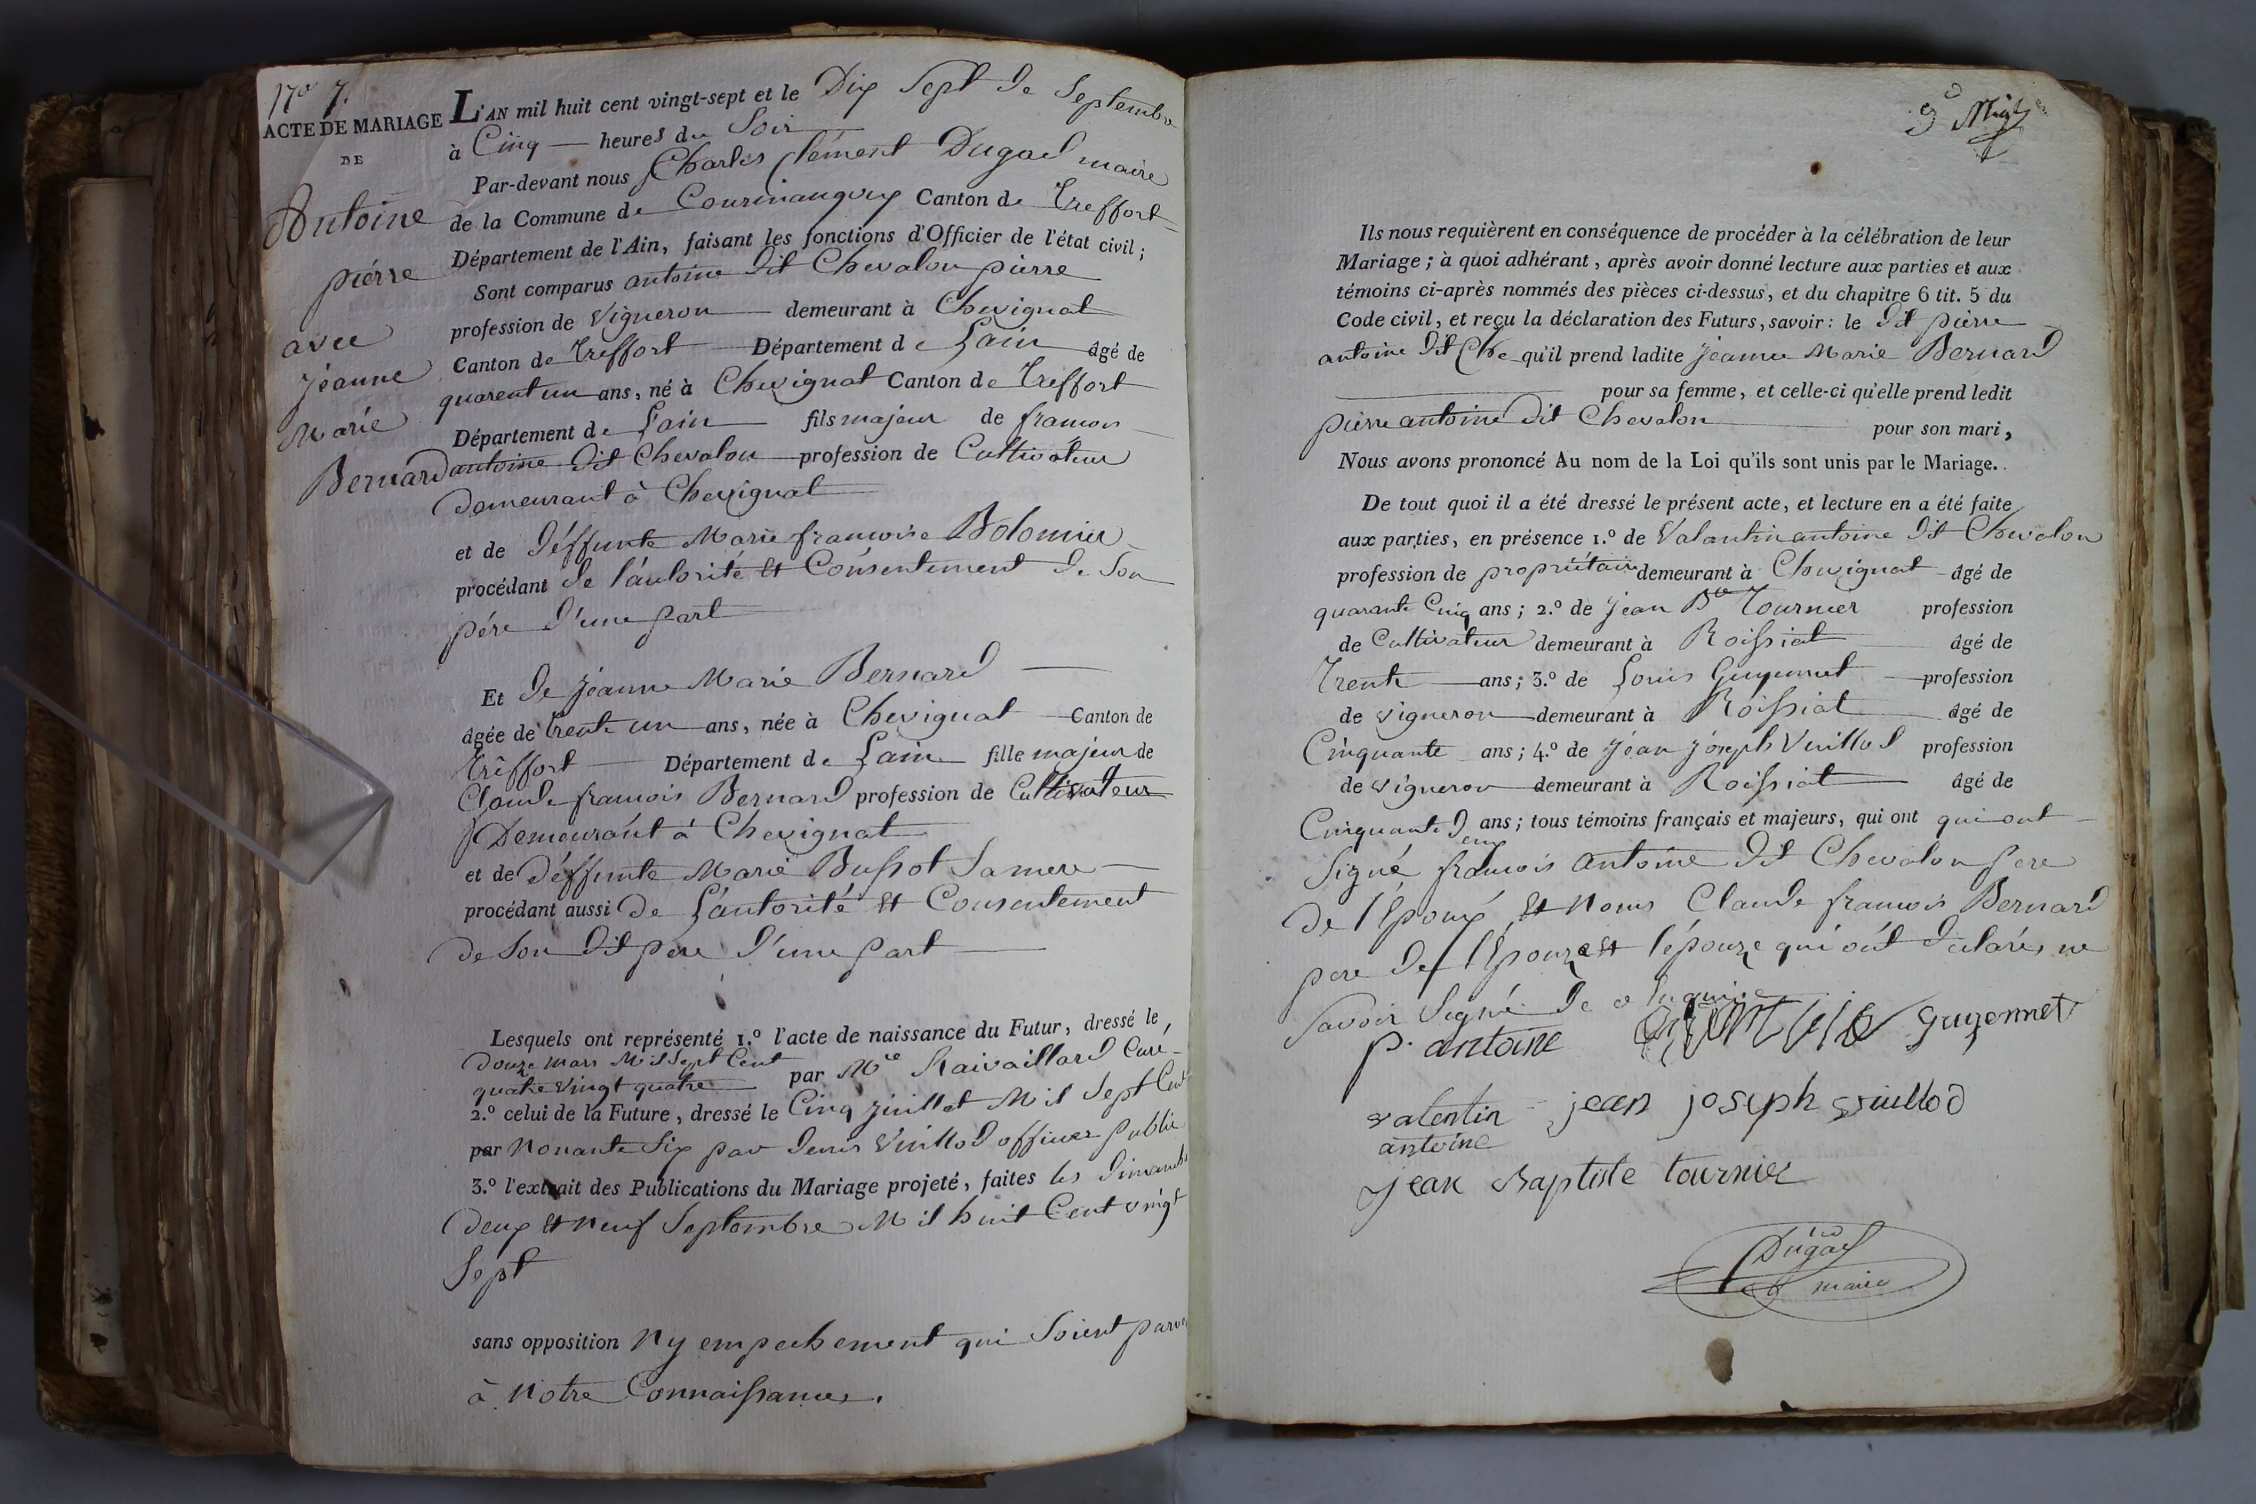 N° 7.
ACTE DE MARIAGE
DE
Antoine
pierre
avec
jeanne
Marie
Bernard
L'AN mil huit cent vingt-sept et le Dix Sept de Septembre
à Cinq heures du Soir
Par-devant nous Charles Clément Dugad maire
de la Commune de Courmangoux Canton de Treffort
Département de l'Ain, faisant les fonctions d'Officier de l'état civil;
Sont comparus antoine dit Chevalon pierre
profession de Vigneron demeurant à Chevignat
Canton de Treffort Département de Lain âgé de
quarent un ans, né à Chevignat Canton de Treffort
Département de Lain fils majeur de francois
antoine dit Chevalon profession de Cultivateur
demeurant à Chevignat
et de déffunte Marie francoise Bolomier
procédant de l'autorité et Consentement de Son
pére d'une part
Et de jeanne Marie Bernard
âgée de trente un ans, née à Chevignat Canton de
Treffort Département de Lain fille majeur de
Claude francois Bernard profession de Cultivateur
Demeurant à Chevignat
et de déffunte Marie Bussot Sa mere
procédant aussi de L'autorité et Consentement
de Son dit pere d'une part
Lesquels ont représenté 1.º l'acte de naissance du Futur, dressé le
douze mars Mil Sept Cent
quatre vingt quatre par Mre Raivaillard Curé
2.º celui de la Future, dressé le Cinq juillet Mil Sept Cent
par Nonante Six par denis Vuillod officier public
3.º l'extrait des Publications du Mariage projeté, faites les dimanches
deux et neuf Septembre Mil huit Cent vingt
Sept
sans opposition ny empechement qui Soient parvenu
à Notre Connaissances.
Ils nous requièrent en conséquence de procéder à la célébration de leur
Mariage; à quoi adhérant, après avoir donné lecture aux parties et aux
témoins ci-après nommés des pièces ci-dessus, et du chapitre 6 tit. 5 du
Code civil, et reçu la déclaration des Futurs, savoir: le dit pierre
antoine dit Che qu'il prend ladite jeanne Marie Bernard
pour sa femme, et celle-ci qu'elle prend ledit
pierre antoine dit Chevalon pour son mari,
Nous avons prononcé Au nom de la Loi qu'ils sont unis par le Mariage.
De tout quoi il a été dressé le présent acte, et lecture en a été faite
aux parties, en présence 1.º de Valantin antoine dit Chevalon
profession de propriétaire demeurant à Chevignat âgé de
quarante Cinq ans; 2.º de jean Bte Tournier profession
de Cultivateur demeurant à Roissiat âgé de
Trente ans; 3.º de Louis Guyennet profession
de vigneron demeurant à Roissiat âgé de
Cinquante ans; 4.º de jean joseph Vuillod profession
de vigneron demeurant à Roissiat âgé de
Cinquante deux ans; tous témoins français et majeurs, qui ont qui ont
Signé francois antoine dit Chevalon pere
de l'Époux et Nous Claude francois Bernard
pere de l'Épouze et l'épouze qui ont déclarés ne
Savoir Signé de ce Enquire
p. antoine guyennet
valentin jean joseph vuillod
antoine
jean Baptiste tournier
Dugad
maire